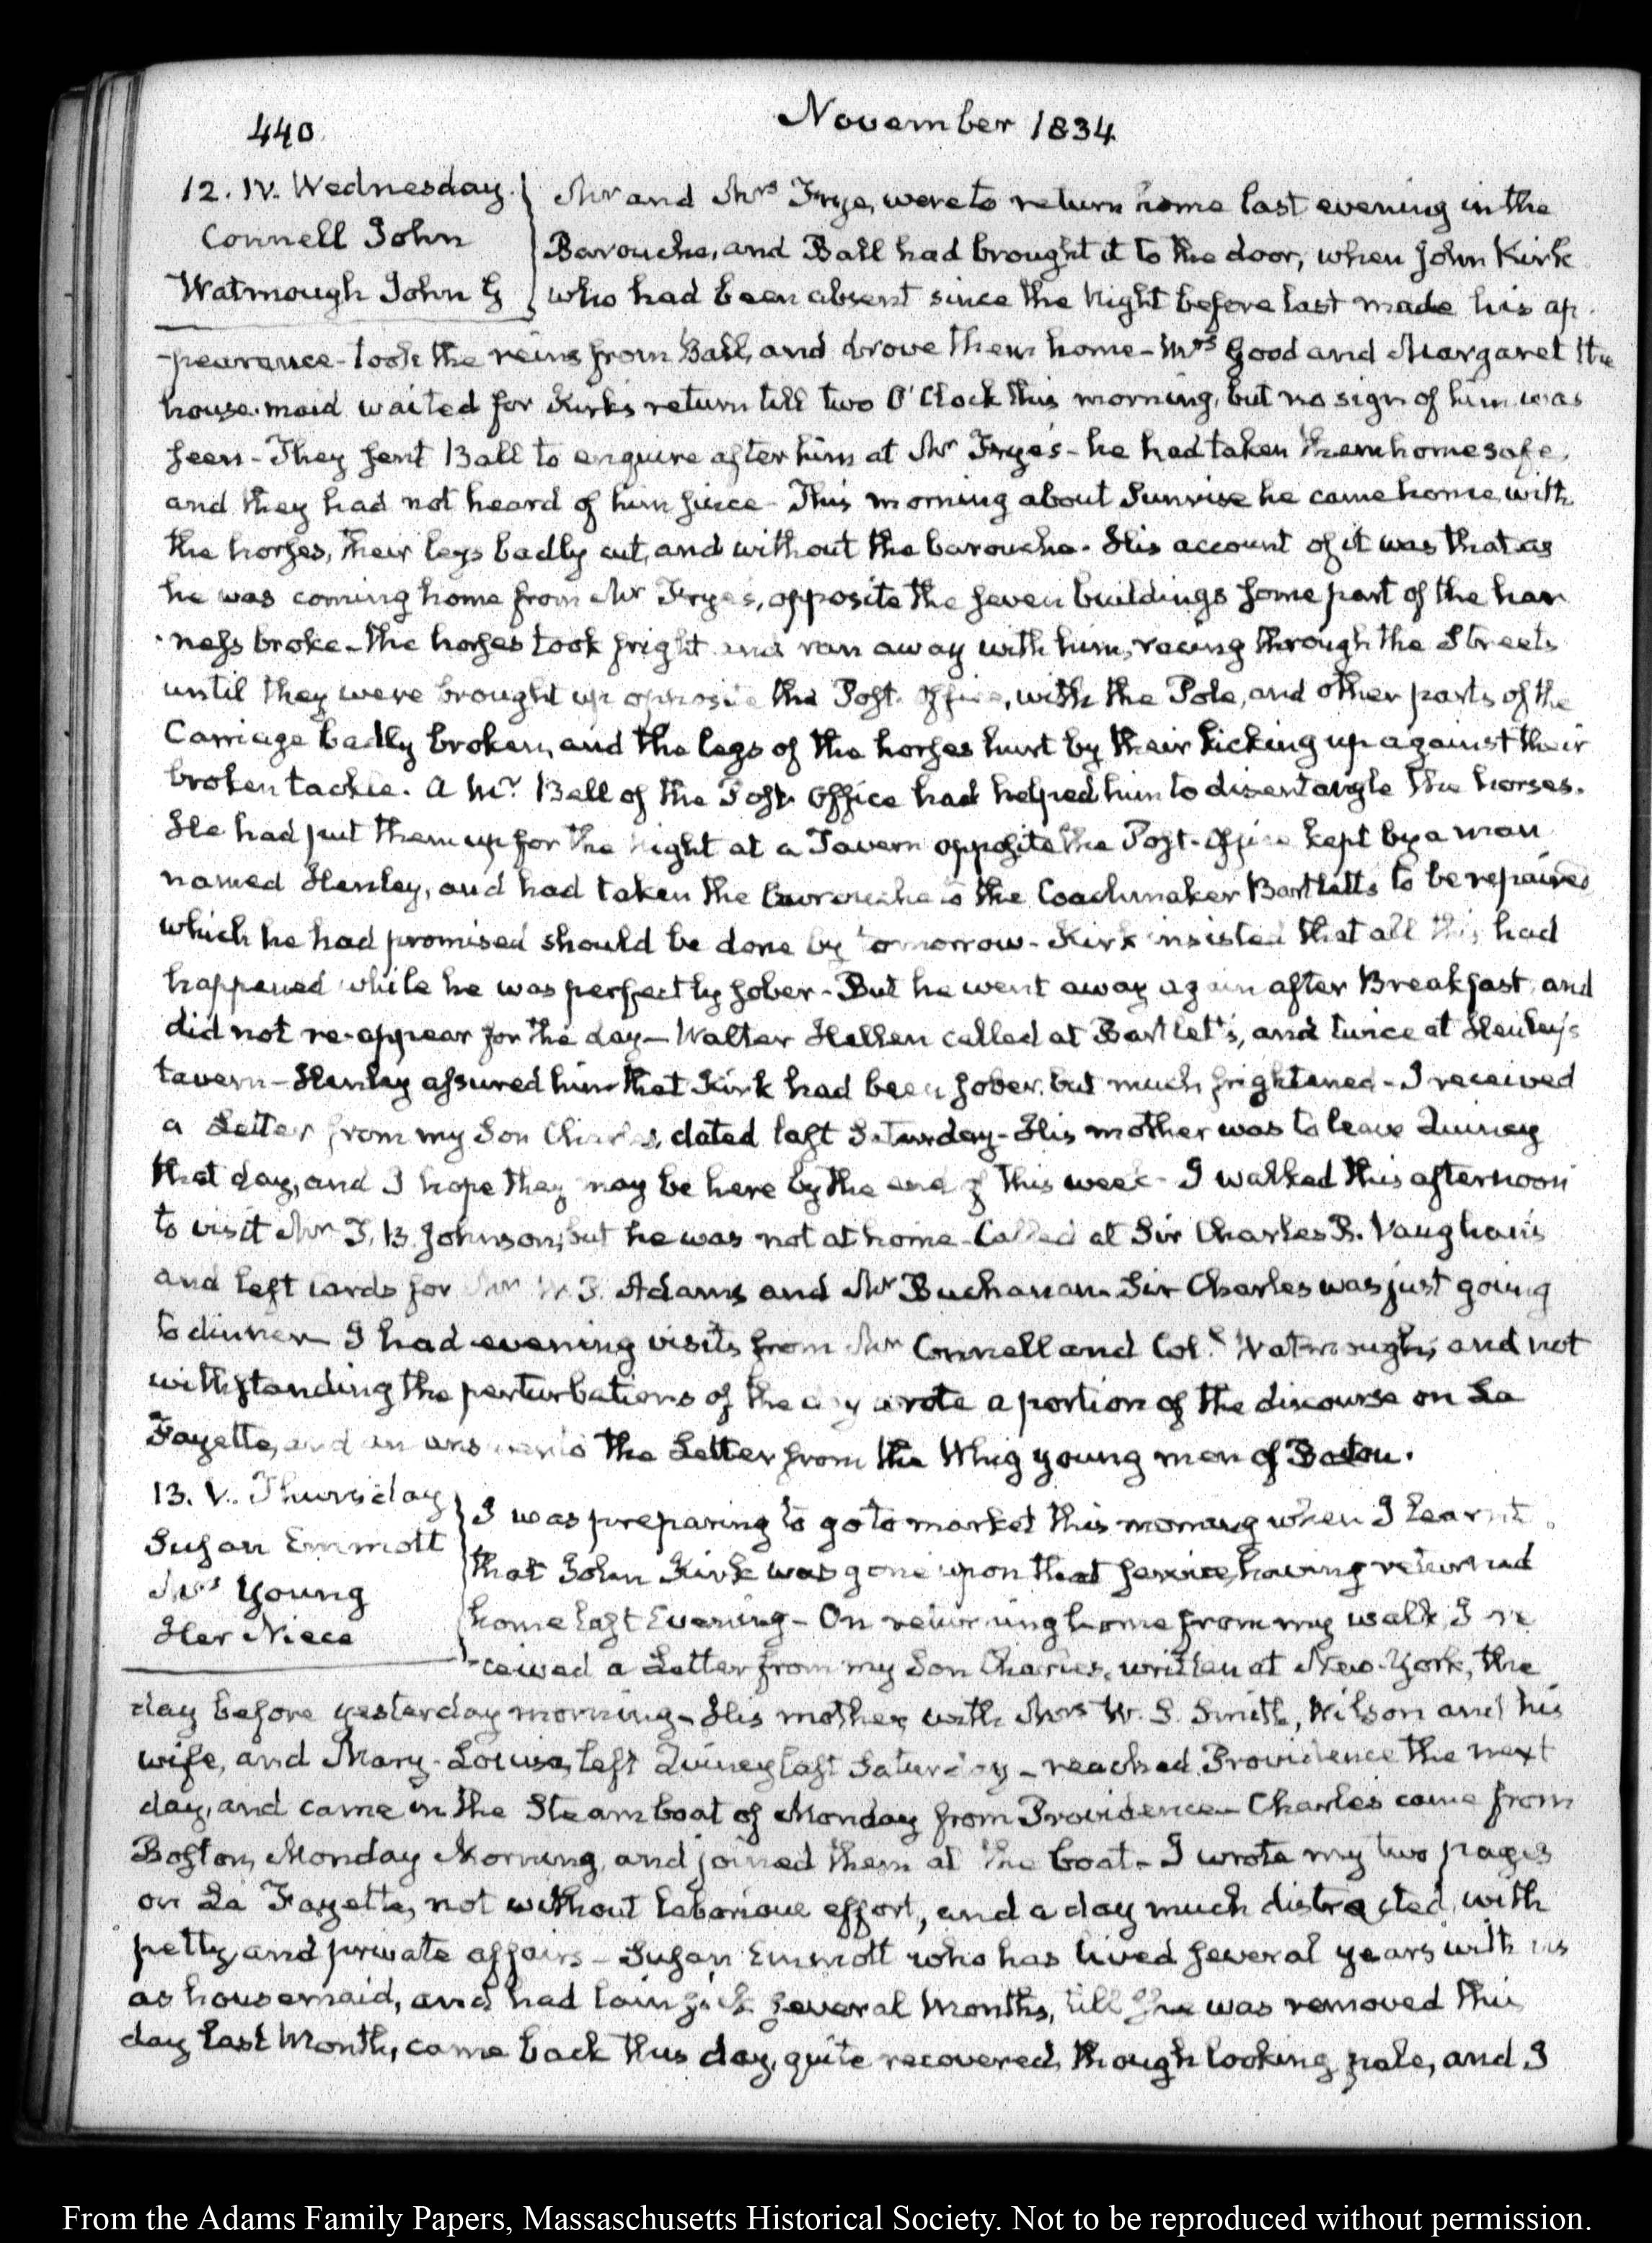 440
November 1834
12. IV. Wednesday.
Connell John
Watmough John G
Mr and Mrs Frye, were to return home last evening in the
Barouche, and Ball had brought it to the door, when John Kirk
who had been absent since the Night before last made his ap-
-pearance - took the reins from Ball, and drove them home - Mrs Good and Margaret the
house-maid waited for Kirk's return till two O'Clock this morning, but no sign of him was
seen - They sent Ball to enquire after him at Mr Frye's - he had taken them home safe,
and they had not heard of him since - This morning about Sunrise he came home with
the horses, their legs badly cut, and without the barouche. His account of it was that as
he was coming home from Mr Frye's, opposite the seven buildings some part of the har
-ness broke - the horses took fright and ran away with him, racing through the Streets
until they were brought up opposite the Post Office, with the Pole, and other parts of the
Carriage badly broken, and the legs of the horses hurt by their kicking up against their
broken tackle. A Mr. Ball of the Post Office had helped him to disentangle the horses.
He had put them up for the night at a Tavern opposite the Post-Office kept by a man
named Henley, and had taken the barouche to the Coachmaker Bartletts to be repaired
which he had promised should be done by tomorrow - Kirk insisted that all this had
happened while he was perfectly sober - But he went away again after Breakfast, and
did not re-appear for the day - Walter Hellen called at Bartlet's, and twice at Henley's
tavern - Henley assured him that Kirk had been sober, but much frightened - I received
a Letter from my Son Charles, dated last Saturday - His mother was to leave Quincy
that day, and I hope they may be here by the end of this week - I walked this afternoon
to visit Mr T. B. Johnson, but he was not at home - Called at Sir Charles R. Vaughan's
and left cards for Mr Adams and Mr Buchanan - Sir Charles was just going
to dinner - I had evening visits from Mr Connell and Col. Watmough, and not
withstanding the perturbations of the day wrote a portion of the discourse on La
Fayette, and an answer to the Letter from the Whig young men of Boston.
13. V. Thursday
Susan Emmott
Mrs Young
Her Niece
I was preparing to go to market this morning when I learnt
that John Kirk was gone upon that service, having returned
home last Evening - On returning home from my walk, I re
-ceived a Letter from my Son Charles, written at New-York, the
day before yesterday morning - His mother with Mrs W. S. Smith, Wilson and his
wife, and Mary-Louisa, left Quincy last Saturday - reached Providence the next
day, and came in the Steam boat of Monday from Providence - Charles came from
Boston, Monday Morning, and joined them at the boat - I wrote my two pages
on La Fayette, not without laborious effort, and a day much distracted, with
petty and private affairs - Susan Emmott who has lived several years with us
as housemaid, and had lain sick several Months, till she was removed this
day last Month, came back this day, quite recovered, though looking pale, and I
From the Adams Family Papers, Massaschusetts Historical Society. Not to be reproduced without permission.